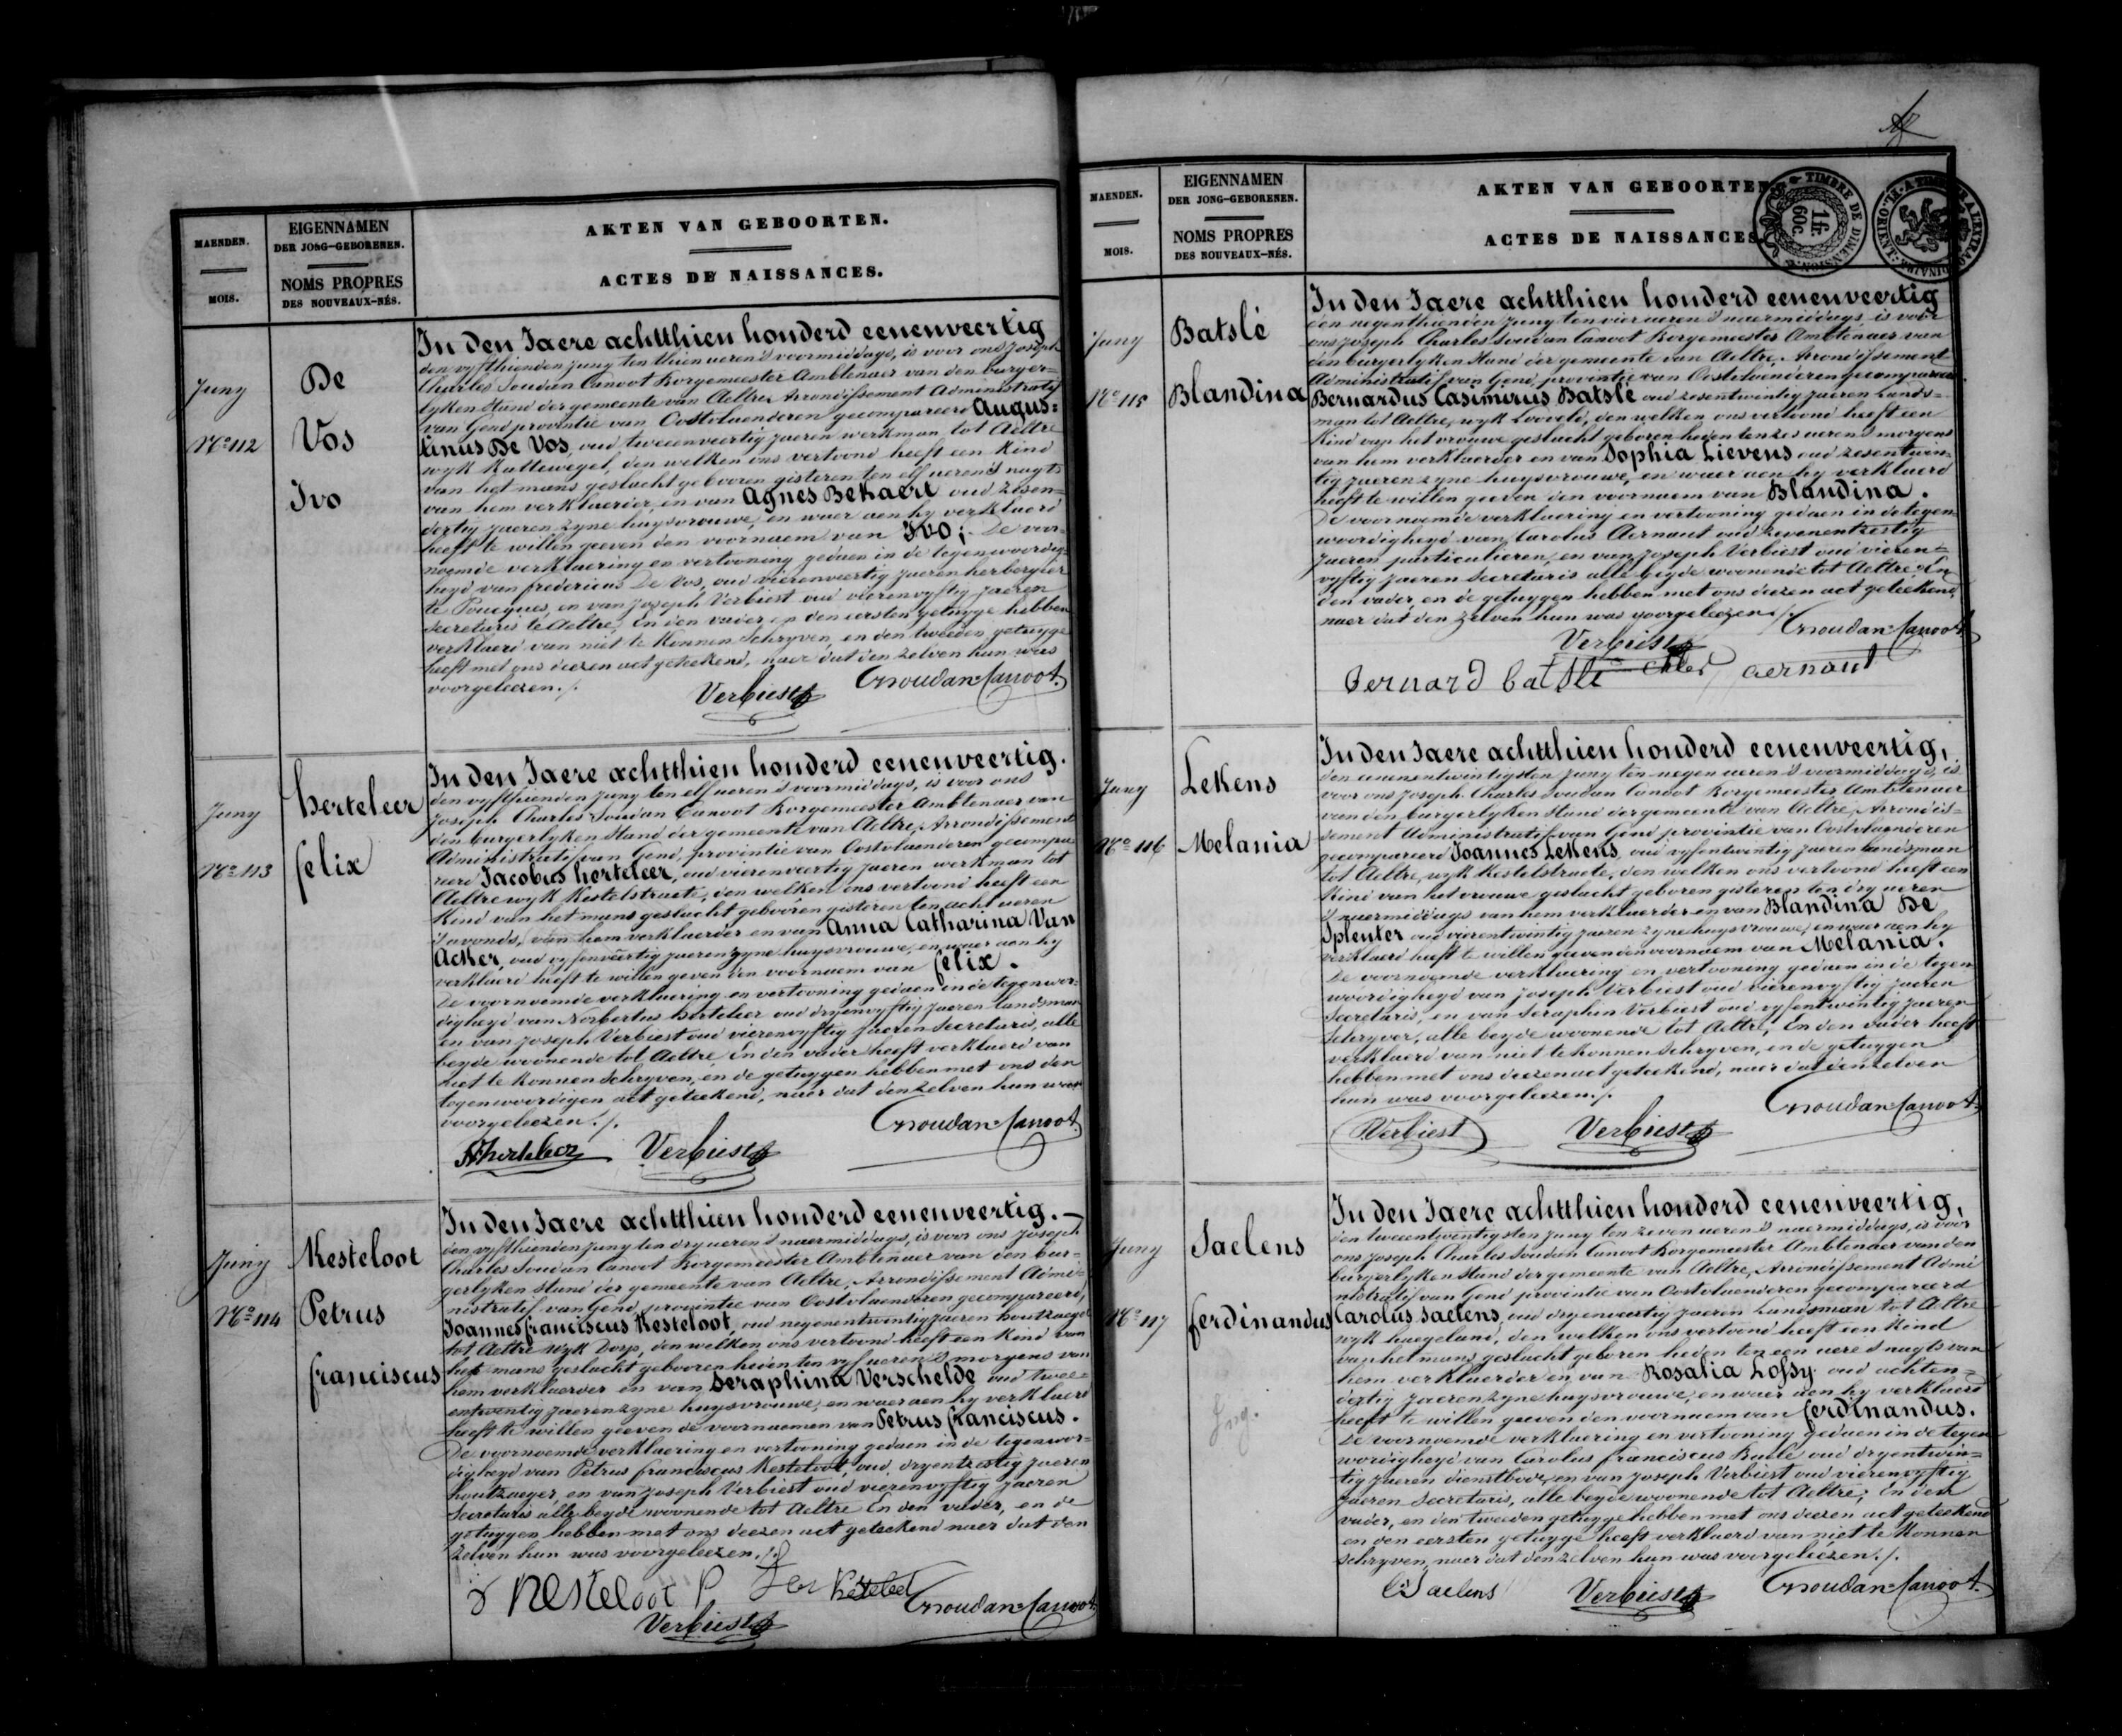 MAENDEN.
MOIS.
EIGENNAMEN
DER JONG-GEBORENEN.
NOMS PROPRES
DES NOUVEAUX-NÉS.
AKTEN VAN GEBOORTEN.
ACTES DE NAISSANCES.
Juny
Nº 112
De
Vos
Ivo
In den Jaere achtthien honderd eenenveertig
den vyfthienden Juny ten thien ueren 's voormiddags, is voor ons Joseph
Charles Soudan Canoot Borgemeester Amblenaer van den burger=
lyken Stand der gemeente van Aeltre Arrondissement Administratif
van Gend provintie van Oostvlaenderen gecompareerd Augus=
tinus De Vos, oud tweeenveertig jaeren werkman tot Aeltre
wyk Kattewegel, den welken ons vertoond heeft een Kind
van het mans geslacht gebooren gisteren ten elf ueren 's nagts
van hem verklaerder, en van Agnes Bekaert oud zesen=
dertig jaeren zyne huysvrouwe, en waer aen hy verklaerd
heeft te willen geeven den voornaem van Ivo; De voor=
noemde verklaering en vertooning gedaen in de tegenwoordig=
heyd van fredericus De Vos, oud vierenveertig jaeren herbergier
te Poucques, en van Joseph Verbiest oud vierenvyftig jaeren
Secretaris te Aeltre, En den vader en den eersten getuyge hebben
verklaerd van niet te konnen Schryven, en den tweeden getuyge
heeft met ons deezen act geteekend, naer dat den zelven hun was
voorgeleezen./.
Verbiest
Soudan Canoot
Juny
Nº 113
herteleer
felix
In den Jaere achtthien honderd eenenveertig.
den vyfthienden Juny ten elf ueren 's voormiddags, is voor ons
Joseph Charles Soudan Canoot Borgemeester Amblenaer van
den burgerlyken Stand der gemeente van Aeltre, Arrondissement
Administratif van Gend, provintie van Oostvlaenderen gecompa
reerd Jacobus herteleer, oud vierenveertig jaeren werkman tot
Aeltre wyk Kestelstraete, den welken ons vertoond heeft een
Kind van het mans geslacht gebooren gisteren ten acht ueren
's avonds, van hem verklaerder en van Anna Catharina Van
Acker, oud vyfenveertig jaeren zyne huysvrouwe, en waer aen hy
verklaerd heeft te willen geven den voornaem van felix.
De voornoemde verklaering en vertooning gedaen in de tegenwor=
digheyd van Norbertus herteleer oud dryenvyftig jaeren landsman
en van Joseph Verbiest oud vierenvyftig jaeren Secretaris, alle
beyde woonende tot Aeltre En den vader heeft verklaerd van
niet te konnen Schryven, en de getuygen hebben met ons den
tegenwoordigen act geteekend, naer dat den zelven hun was
voorgeleezen./.
Verbiest
Soudan Canoot
Juny
Nº 114
Kesteloot
Petrus
franciscus
In den Jaere achtthien honderd eenenveertig.
den vyfthienden Juny ten dry ueren 's naermiddags, is voor ons Joseph
Charles Soudan Canoot Borgemeester Amblenaer van den bur=
gerlyken stand der gemeente van Aeltre, Arrondissement Admi=
nistratif van Gend, provintie van Oostvlaenderen gecompareerd,
Joannes franciscus Kesteloot, oud negenentwintig jaeren houtzaeger
tot Aeltre wyk Dorp, den welken ons vertoond heeft een Kind van
het mans geslacht gebooren heden ten vyf ueren 's morgens van
hem verklaerder en van Seraphina Verschelde oud twee=
entwintig jaeren zyne huysvrouwe, en waer aen hy verklaerd
heeft te willen geeven de voornaemen van Petrus franciscus.
De voornoemde verklaering en vertooning gedaen in de tegenwor=
digheyd van Petrus franciscus Kesteloot, oud dryentzestig jaeren
houtzaeger, en van Joseph Verbiest oud vierenvyftig jaeren
Secretaris alle beyde woonende tot Aeltre En den vader, en de
getuygen hebben met ons deezen act geteekend naer dat den
zelven hun was voorgeleezen./.
Kesteloot
Verbiest
Soudan Canoot
MAENDEN.
MOIS.
EIGENNAMEN
DER JONG-GEBORENEN.
NOMS PROPRES
DES NOUVEAUX-NÉS.
AKTEN VAN GEBOORTEN.
ACTES DE NAISSANCES.
TIMBRE DE DIMENSION
1 fr.
60 c.
Juny
Nº 115
Batslé
Blandina
In den Jaere achtthien honderd eenenveertig
den negenthienden Juny ten vier ueren 's naermiddags is voor
ons Joseph Charles Soudan Canoot Borgemeester Amblenaer van
den burgerlyken Stand der gemeente van Aeltre, Arrondissement
Administratif van Gend, provintie van Oostvlaenderen gecompareerd
Bernardus Casimirus Batslé oud zesentwintig jaeren Lands=
man tot Aeltre, wyk Loovelde, den welken ons vertoond heeft een
Kind van het vrouwe geslacht geboren heden ten zes ueren 's morgens
van hem verklaerder en van Sophia Lievens oud zesentwin=
tig jaeren zyne huysvrouwe, en waer aen hy verklaerd
heeft te willen geeven den voornaem van Blandina.
De voornoemde verklaering en vertooning gedaen in de tegen=
woordigheyd van Carolus Aernaut oud zevenentzestig
jaeren particulieren, en van Joseph Verbiest oud vieren=
vyftig jaeren Secretaris alle beyde woonende tot Aeltre En
den vader, en de getuygen hebben met ons deezen act geteekend,
naer dat den zelven hun was voorgeleezen./.
Verbiest
Soudan Canoot
Bernard batslé
aernaut
Juny
Nº 116
Lekens
Melania
In den Jaere achtthien honderd eenenveertig,
den eenentwintigsten Juny ten negen ueren 's voormiddags, is
voor ons Joseph Charles Soudan Canoot Borgemeester Amblenaer
van den burgerlyken Stand der gemeente van Aeltre, Arrondis=
sement Administratif van Gend provintie van Oostvlaenderen
gecompareerd Joannes Lekens, oud vyfentwintig jaeren landsman
tot Aeltre, wyk Kestelstraete, den welken ons vertoond heeft een
Kind van het vrouwe geslacht geboren gisteren ten dry ueren
's naermiddags van hem verklaerder en van Blandina De
Splenter oud vierentwintig jaeren zyne huysvrouwe, en waer aen hy
verklaerd heeft te willen geeven den voornaem van Melania.
De voornoemde verklaering en vertooning gedaen in de tegen
woordigheyd van Joseph Verbiest oud vierenvyftig jaeren
Secretaris, en van Seraphin Verbiest oud vyfentwintig jaeren
Schryver, alle beyde woonende tot Aeltre, En den vader heeft
verklaerd van niet te konnen Schryven, en de getuygen
hebben met ons deezen act geteekend, naer dat den zelven
hun was voorgeleezen./.
Verbiest
Verbiest
Soudan Canoot
Juny
Nº 117
Saelens
ferdinandus
In den Jaere achtthien honderd eenenveertig,
den tweeentwintigsten Juny ten zeven ueren 's naermiddags, is voor
ons Joseph Charles Soudan Canoot Borgemeester Amblenaer van den
burgerlyken Stand der gemeente van Aeltre, Arrondissement Admi
nistratif van Gend provintie van Oostvlaenderen gecompareerd
Carolus Saelens, oud dryenveertig jaeren Landsman tot Aeltre
wyk haegeland, den welken ons vertoond heeft een Kind
van het mans geslacht geboren heden ten een uere 's nagts van
hem verklaerder en van Rosalia Lossy oud achten=
dertig jaeren zyne huysvrouwe, en waer aen hy verklaerd
heeft te willen geeven den voornaem van ferdinandus.
De voornoemde verklaering en vertooning gedaen in de tegen
wordigheyd van Carolus franciscus Baele oud dryentwin=
tig jaeren dienstbode, en van Joseph Verbiest oud vierenvyftig
jaeren Secretaris, alle beyde woonende tot Aeltre; En den
vader, en den tweeden getuyge hebben met ons deezen act geteekend
en den eersten getuyge heeft verklaerd van niet te konnen
schryven, naer dat den zelven hun was voorgeleezen./.
C Saelens
Verbiest
Soudan Canoot